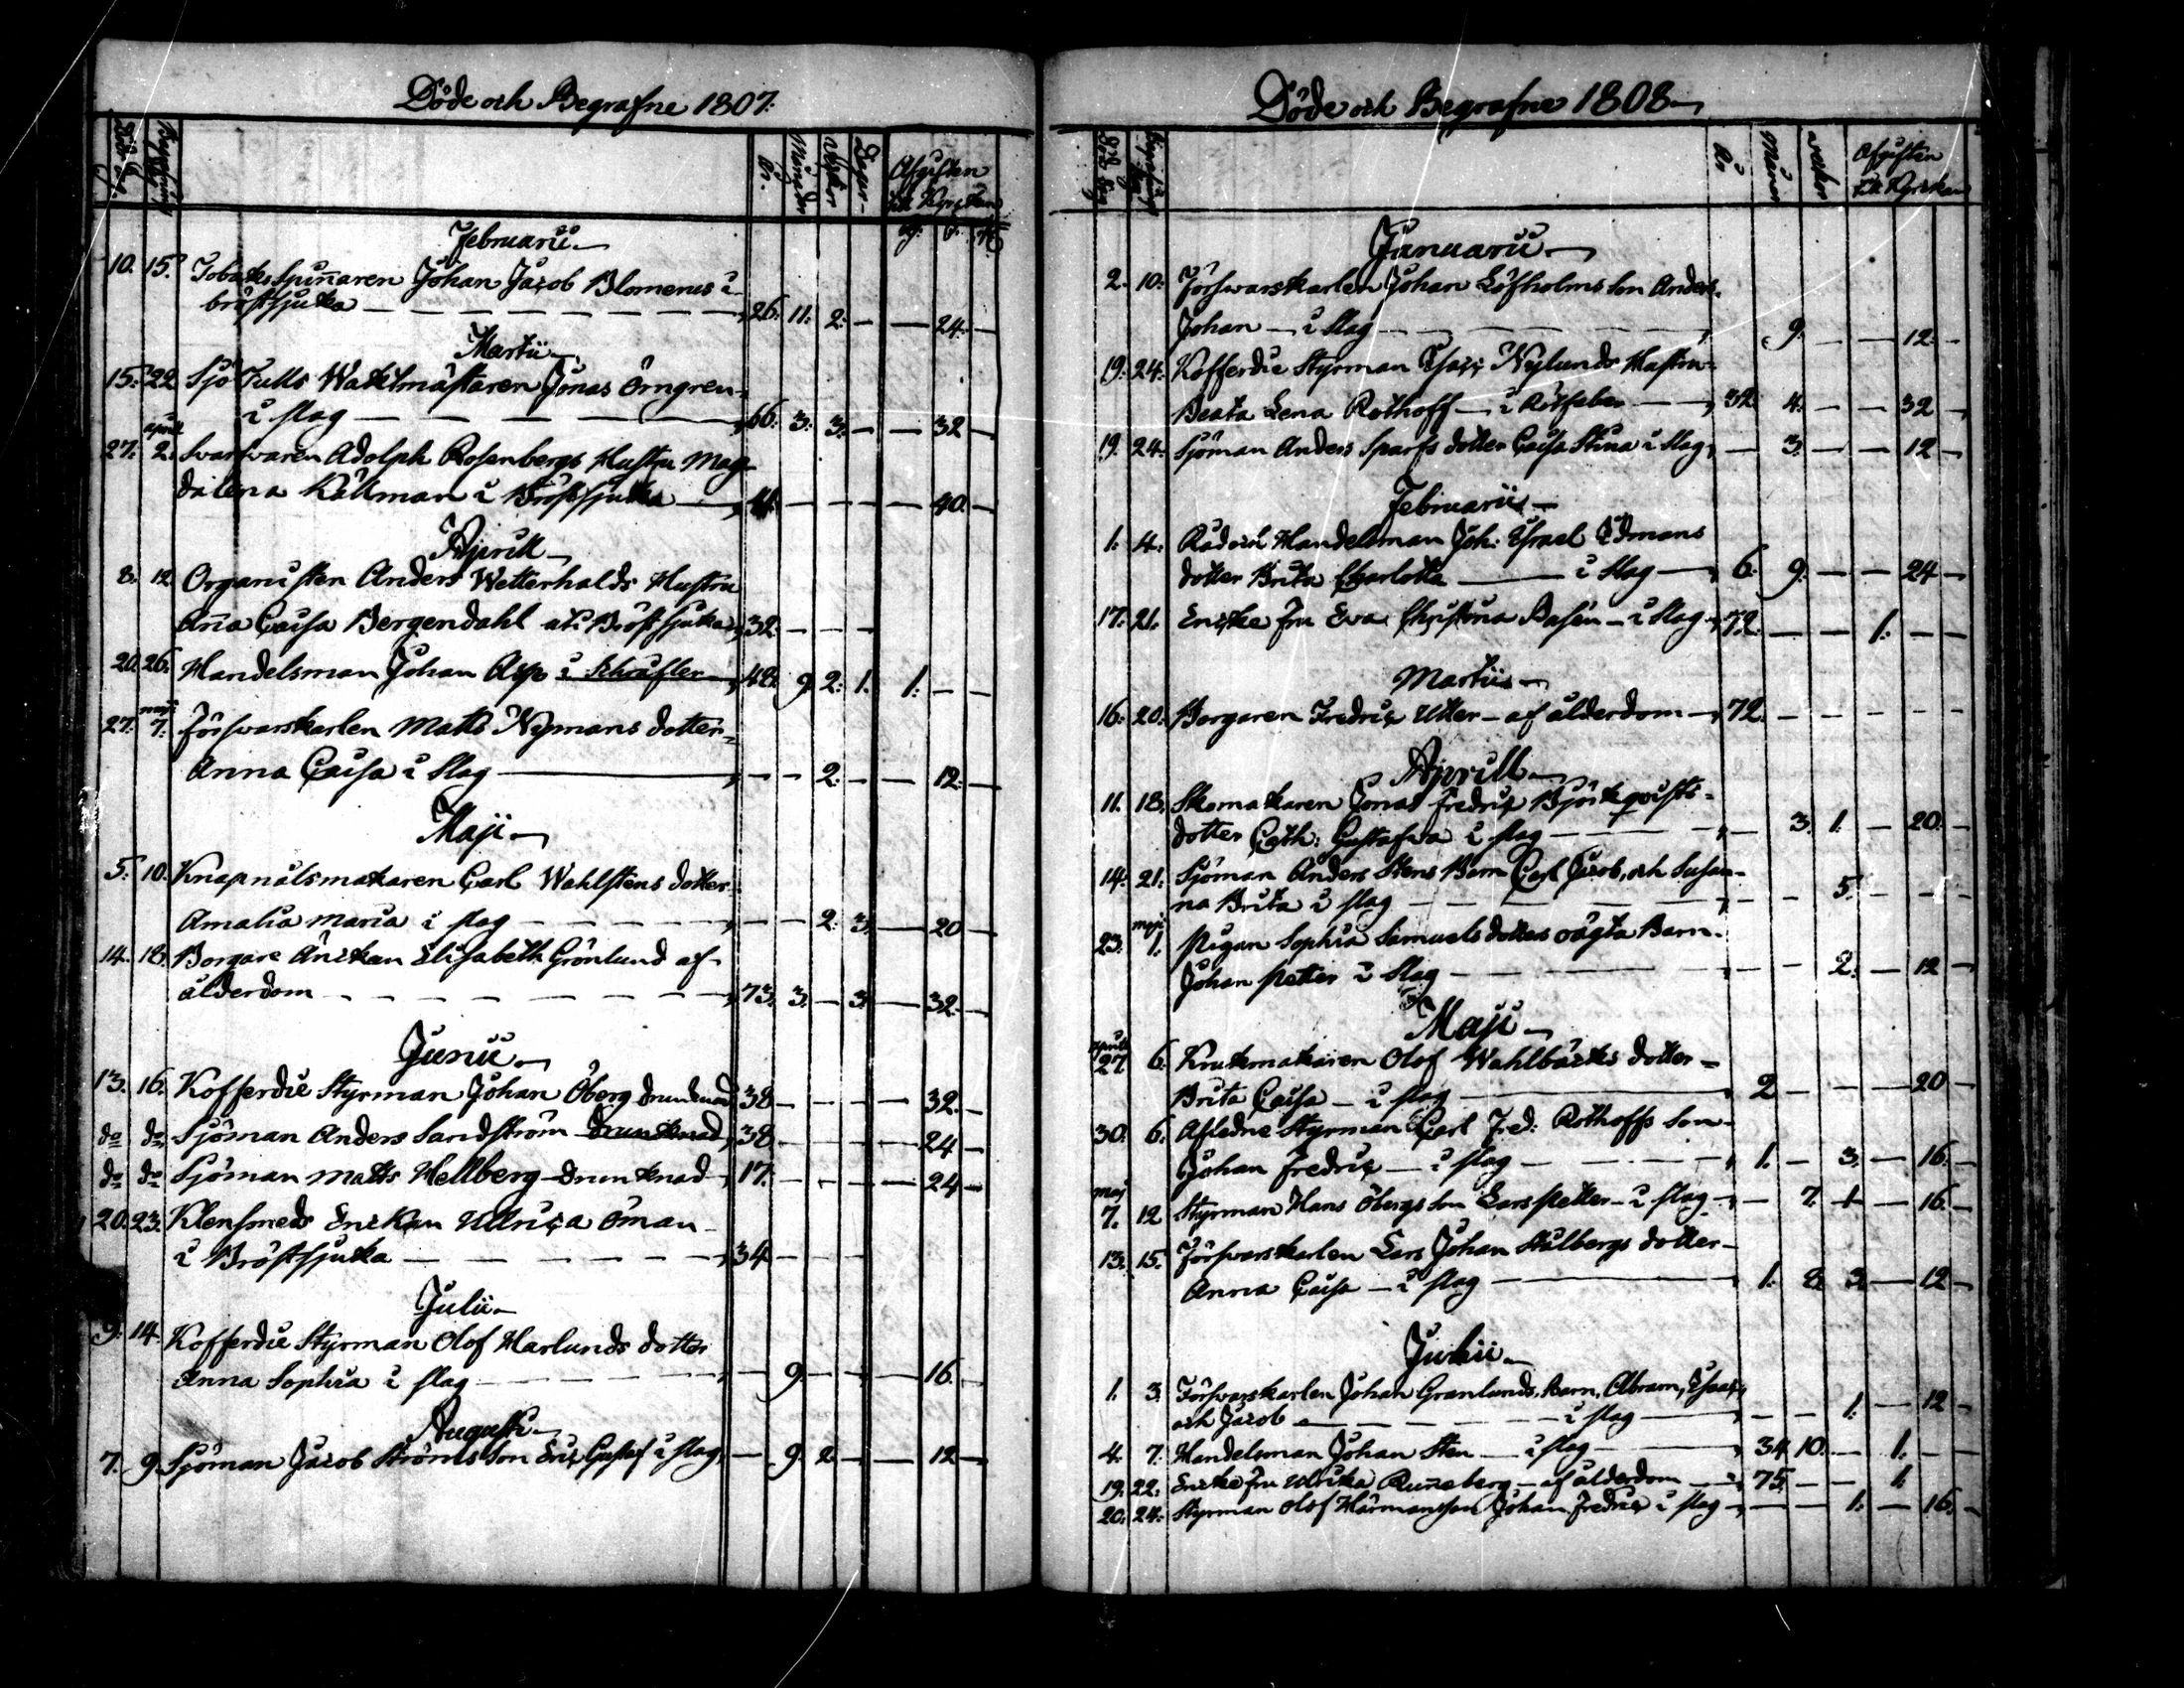 Döde och Begrafne 1807.
Död dag
Begrafnings dag
År.
Månader
Veckor
Dagar
Afgiften
till Kyrckan
Februarii
10. 15. Tobaks Spinnaren Johan Jacob Blomerus i
bröstsjuka 26. 11. 2. — — 24. —
Martii
15. 22 Sjö Tulls Wacktmästaren Jonas Örngren
i slag 66. 3. 3. — — 32 —
april
27. 2. Svarfvaren Adolph Rosenbergs Hustru Mag-
dalena Källman i Bröstsjuka — — — — 40. —
Aprill
8. 12. Organisten Anders Wetterhalds Hustru
Ana Caisa Bergendahl uti Bröstsjuka 32. — — —
20. 26. Handelsman Johan Asp i Schrufler 48. 9. 2. 1. 1. — —
maji
27. 7. försvarskarlen Matts Nymans dotter
Anna Caisa i slag — — 2. — — 12. —
Maji
5. 10. Knapnålsmakaren Carl Wahlstens dotter
Amalia Maria i slag — — 2. 3. — 20 —
14. 18. Borgare Änckan Elisabeth Grönlund af
ålderdom 73. 3. — 3. — 32. —
Junii
13. 16. Kofferdie Styrman Johan Öberg drunknad 38 — — — — 32. —
do do Sjöman Anders Sandström drunknad 38 — — — — 24 —
do do Sjöman Matts Hellberg drunknad 17. — — — — 24 —
20. 23. Klensmeds Enckan Ullrica Öman
i Bröstsjuka 34 — — —
Julii
9. 14. Kofferdie Styrman Olof Harlunds dotter
Anna Sophia i slag — 9. — — — 16. —
Augusti
7. 9. Sjöman Jacob Ströms Son Eric Gustaf i slag — 9. 2 — — 12 —
Döde och Begrafne 1808
Död dag
Begrafnings dag
År
Månar
veckor
Afgiften
till Kyrckan
Januarii
2. 10. Försvarskarlen Johan Löfholms Son Anders
Johan — i slag 9. — — 12. —
19. 24. Kofferdie Styrman Isacc Nylunds Hustru
Beata Lena Rothoff — i Rötfeber 32. 4. — — 32 —
19. 24. Sjöman Anders Sparfs dotter Caisa Stina i slag — 3. — — 12 —
Februarii
1. 4. Råd och Handelsman Joh: Israel Idmans
dotter Brita Charlotta i slag 6. 9. — — 24 —
17. 21. Encke fru Eva Christina — i slag 72. — — 1. — —
Martii
16. 20. Borgaren Fredric Utter — af ålderdom 72. — — — — —
Aprill
11. 18. Skomakaren Jonas Fredric Björkqvists
dotter Cath: Gustafva i slag — 3. 1. — 20. —
14. 21. Sjöman Anders Stens Barn Carl Jacob, och Susan-
na Brita i slag — — 5. — — —
maji
23. 1. Pigan Sophia Samuels dotters oägta Barn
Johan Petter i slag — — 2. — 12 —
Maji
aprill
27 6. Krukmakaren Olof Wahlbäcks dotter
Brita Caisa — i slag 2 — — — 20 —
30. 6. Afledne Styrman Carl Fred: Rothoffs Son
Johan Fredric — i slag 1. — 3. — 16. —
maj
7. 12 Styrman Hans Öbergs Son Lars Petter — i slag — 7. 1 — 16. —
13. 15. Försvarskarlen Lars Johan Stålbergs dotter
Anna Caisa — i slag 1. 8. 3. — 12 —
Junii
1. 3. Försvarskarlen Johan Granlunds Barn, Abram, Isaac,
och Jacob — i slag — — 1. — 12 —
4. 7. Handelsman Johan Sten — i slag 34 10. — 1. — —
19. 22. Encke fru Ulrika Runeberg — af ålderdom 75. — — 1.
20. 24. Styrman Olof Härmans Son Johan Fredric i slag — — 1. — 16. —